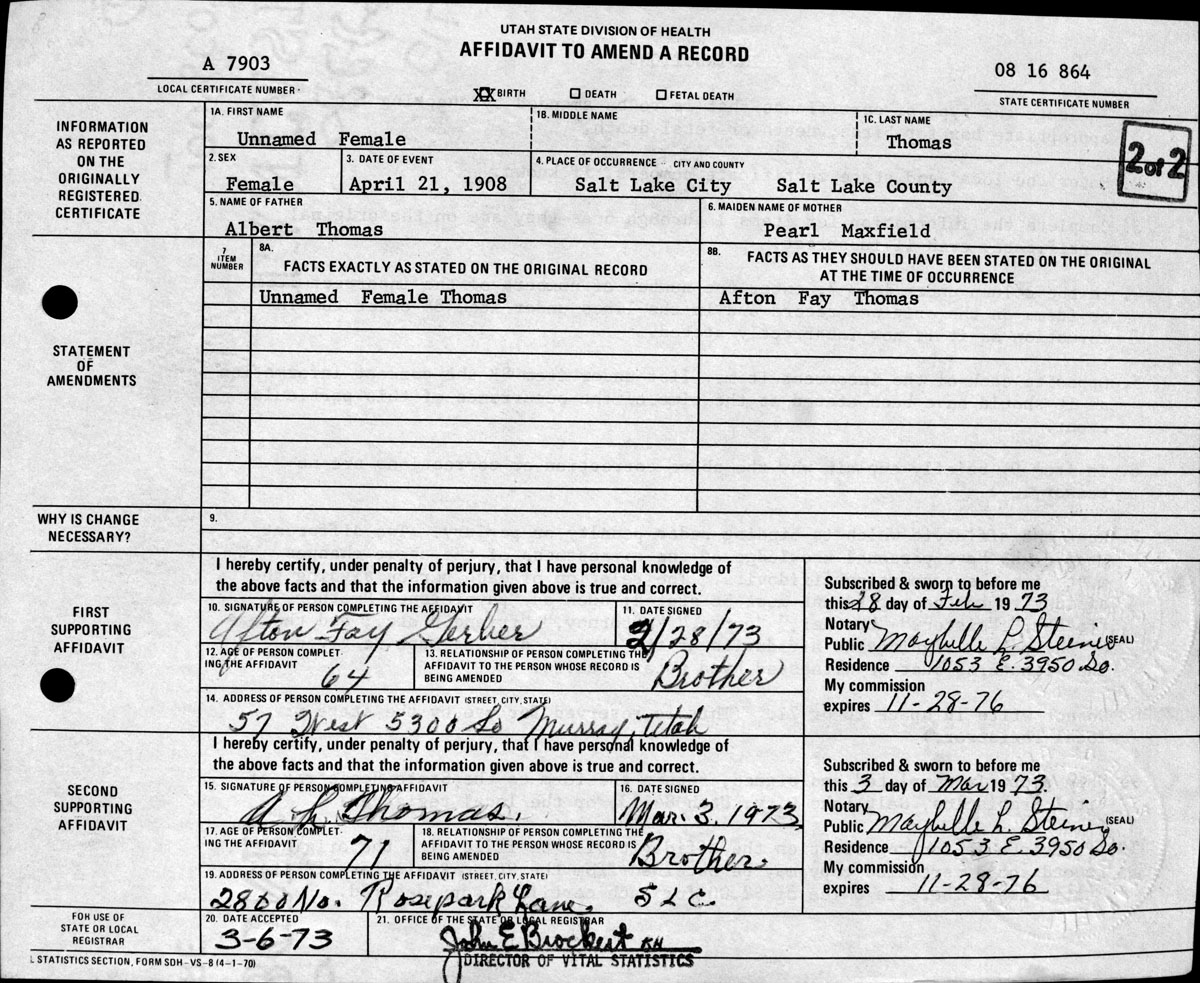 UTAH STATE DIVISION OF HEALTH
AFFIDAVIT TO AMEND A RECORD
A 7903
LOCAL CERTIFICATE NUMBER
XX BIRTH DEATH FETAL DEATH
08 16 864
STATE CERTIFICATE NUMBER
INFORMATION
AS REPORTED
ON THE
ORIGINALLY
REGISTERED
CERTIFICATE
1A. FIRST NAME
Unnamed Female
1B. MIDDLE NAME
1C. LAST NAME
Thomas
2 of 2
2. SEX
Female
3. DATE OF EVENT
April 21, 1908
4. PLACE OF OCCURRENCE - CITY AND COUNTY
Salt Lake City Salt Lake County
5. NAME OF FATHER
Albert Thomas
6. MAIDEN NAME OF MOTHER
Pearl Maxfield
STATEMENT
OF
AMENDMENTS
7
ITEM
NUMBER
8A.
FACTS EXACTLY AS STATED ON THE ORIGINAL RECORD
8B.
FACTS AS THEY SHOULD HAVE BEEN STATED ON THE ORIGINAL
AT THE TIME OF OCCURRENCE
Unnamed Female Thomas
Afton Fay Thomas
WHY IS CHANGE
NECESSARY?
9.
FIRST
SUPPORTING
AFFIDAVIT
I hereby certify, under penalty of perjury, that I have personal knowledge of
the above facts and that the information given above is true and correct.
10. SIGNATURE OF PERSON COMPLETING THE AFFIDAVIT
Afton Fay Gerber
11. DATE SIGNED
2/28/73
12. AGE OF PERSON COMPLET-
ING THE AFFIDAVIT
64
13. RELATIONSHIP OF PERSON COMPLETING THE
AFFIDAVIT TO THE PERSON WHOSE RECORD IS
BEING AMENDED
Brother
14. ADDRESS OF PERSON COMPLETING THE AFFIDAVIT (STREET, CITY, STATE)
57 West 5300 So Murray, Utah
Subscribed & sworn to before me
this 28 day of Feb 19 73
Notary
Public Maybelle L. Steiner (SEAL)
Residence 1053 E. 3950 So.
My commission
expires 11-28-76
SECOND
SUPPORTING
AFFIDAVIT
I hereby certify, under penalty of perjury, that I have personal knowledge of
the above facts and that the information given above is true and correct.
15. SIGNATURE OF PERSON COMPLETING AFFIDAVIT
A. L. Thomas.
16. DATE SIGNED
Mar. 3. 1973
17. AGE OF PERSON COMPLET-
ING THE AFFIDAVIT
71
18. RELATIONSHIP OF PERSON COMPLETING THE
AFFIDAVIT TO THE PERSON WHOSE RECORD IS
BEING AMENDED
Brother.
19. ADDRESS OF PERSON COMPLETING THE AFFIDAVIT (STREET, CITY, STATE)
2860 No. Rosepark Lane. S L C.
Subscribed & sworn to before me
this 3 day of Mar 19 73.
Notary
Public Maybelle L. Steiner (SEAL)
Residence 1053 E. 3950 So.
My commission
expires 11-28-76
FOR USE OF
STATE OR LOCAL
REGISTRAR
20. DATE ACCEPTED
3-6-73
21. OFFICE OF THE STATE OR LOCAL REGISTRAR
John E Brockert KH
DIRECTOR OF VITAL STATISTICS
L STATISTICS SECTION, FORM SDH-VS-8 (4-1-70)